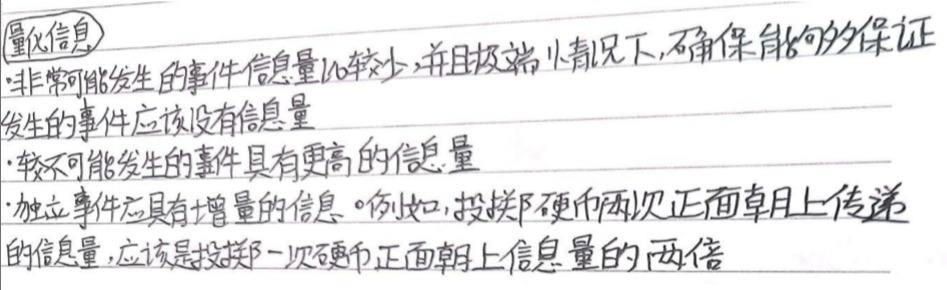 量化信息
·非常可能发生的事件信息量比较少,并且极端情况下,确保能够多保证
发生的事件应该没有信息量
·较不可能发生的事件具有更高的信息量
·独立事件应具有增量的信息。例如,投掷硬币两次正面朝上传递
的信息量,应该是投掷一次硬币正面朝上信息量的两倍